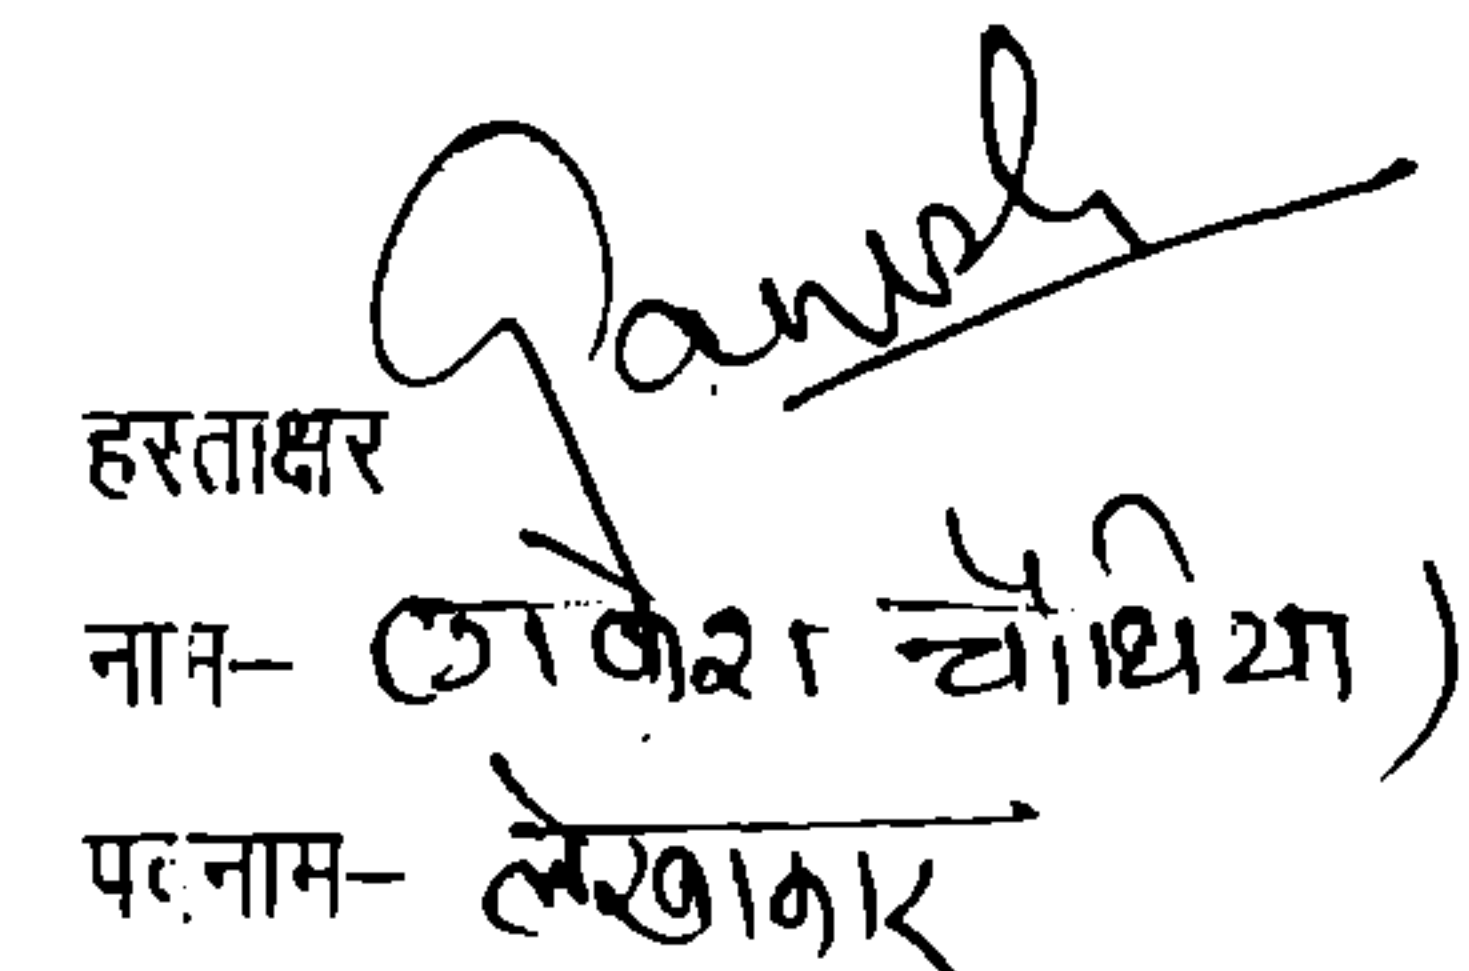 हस्ताक्षर
नाम- चौथिया)
पदनाम- लेखाकार